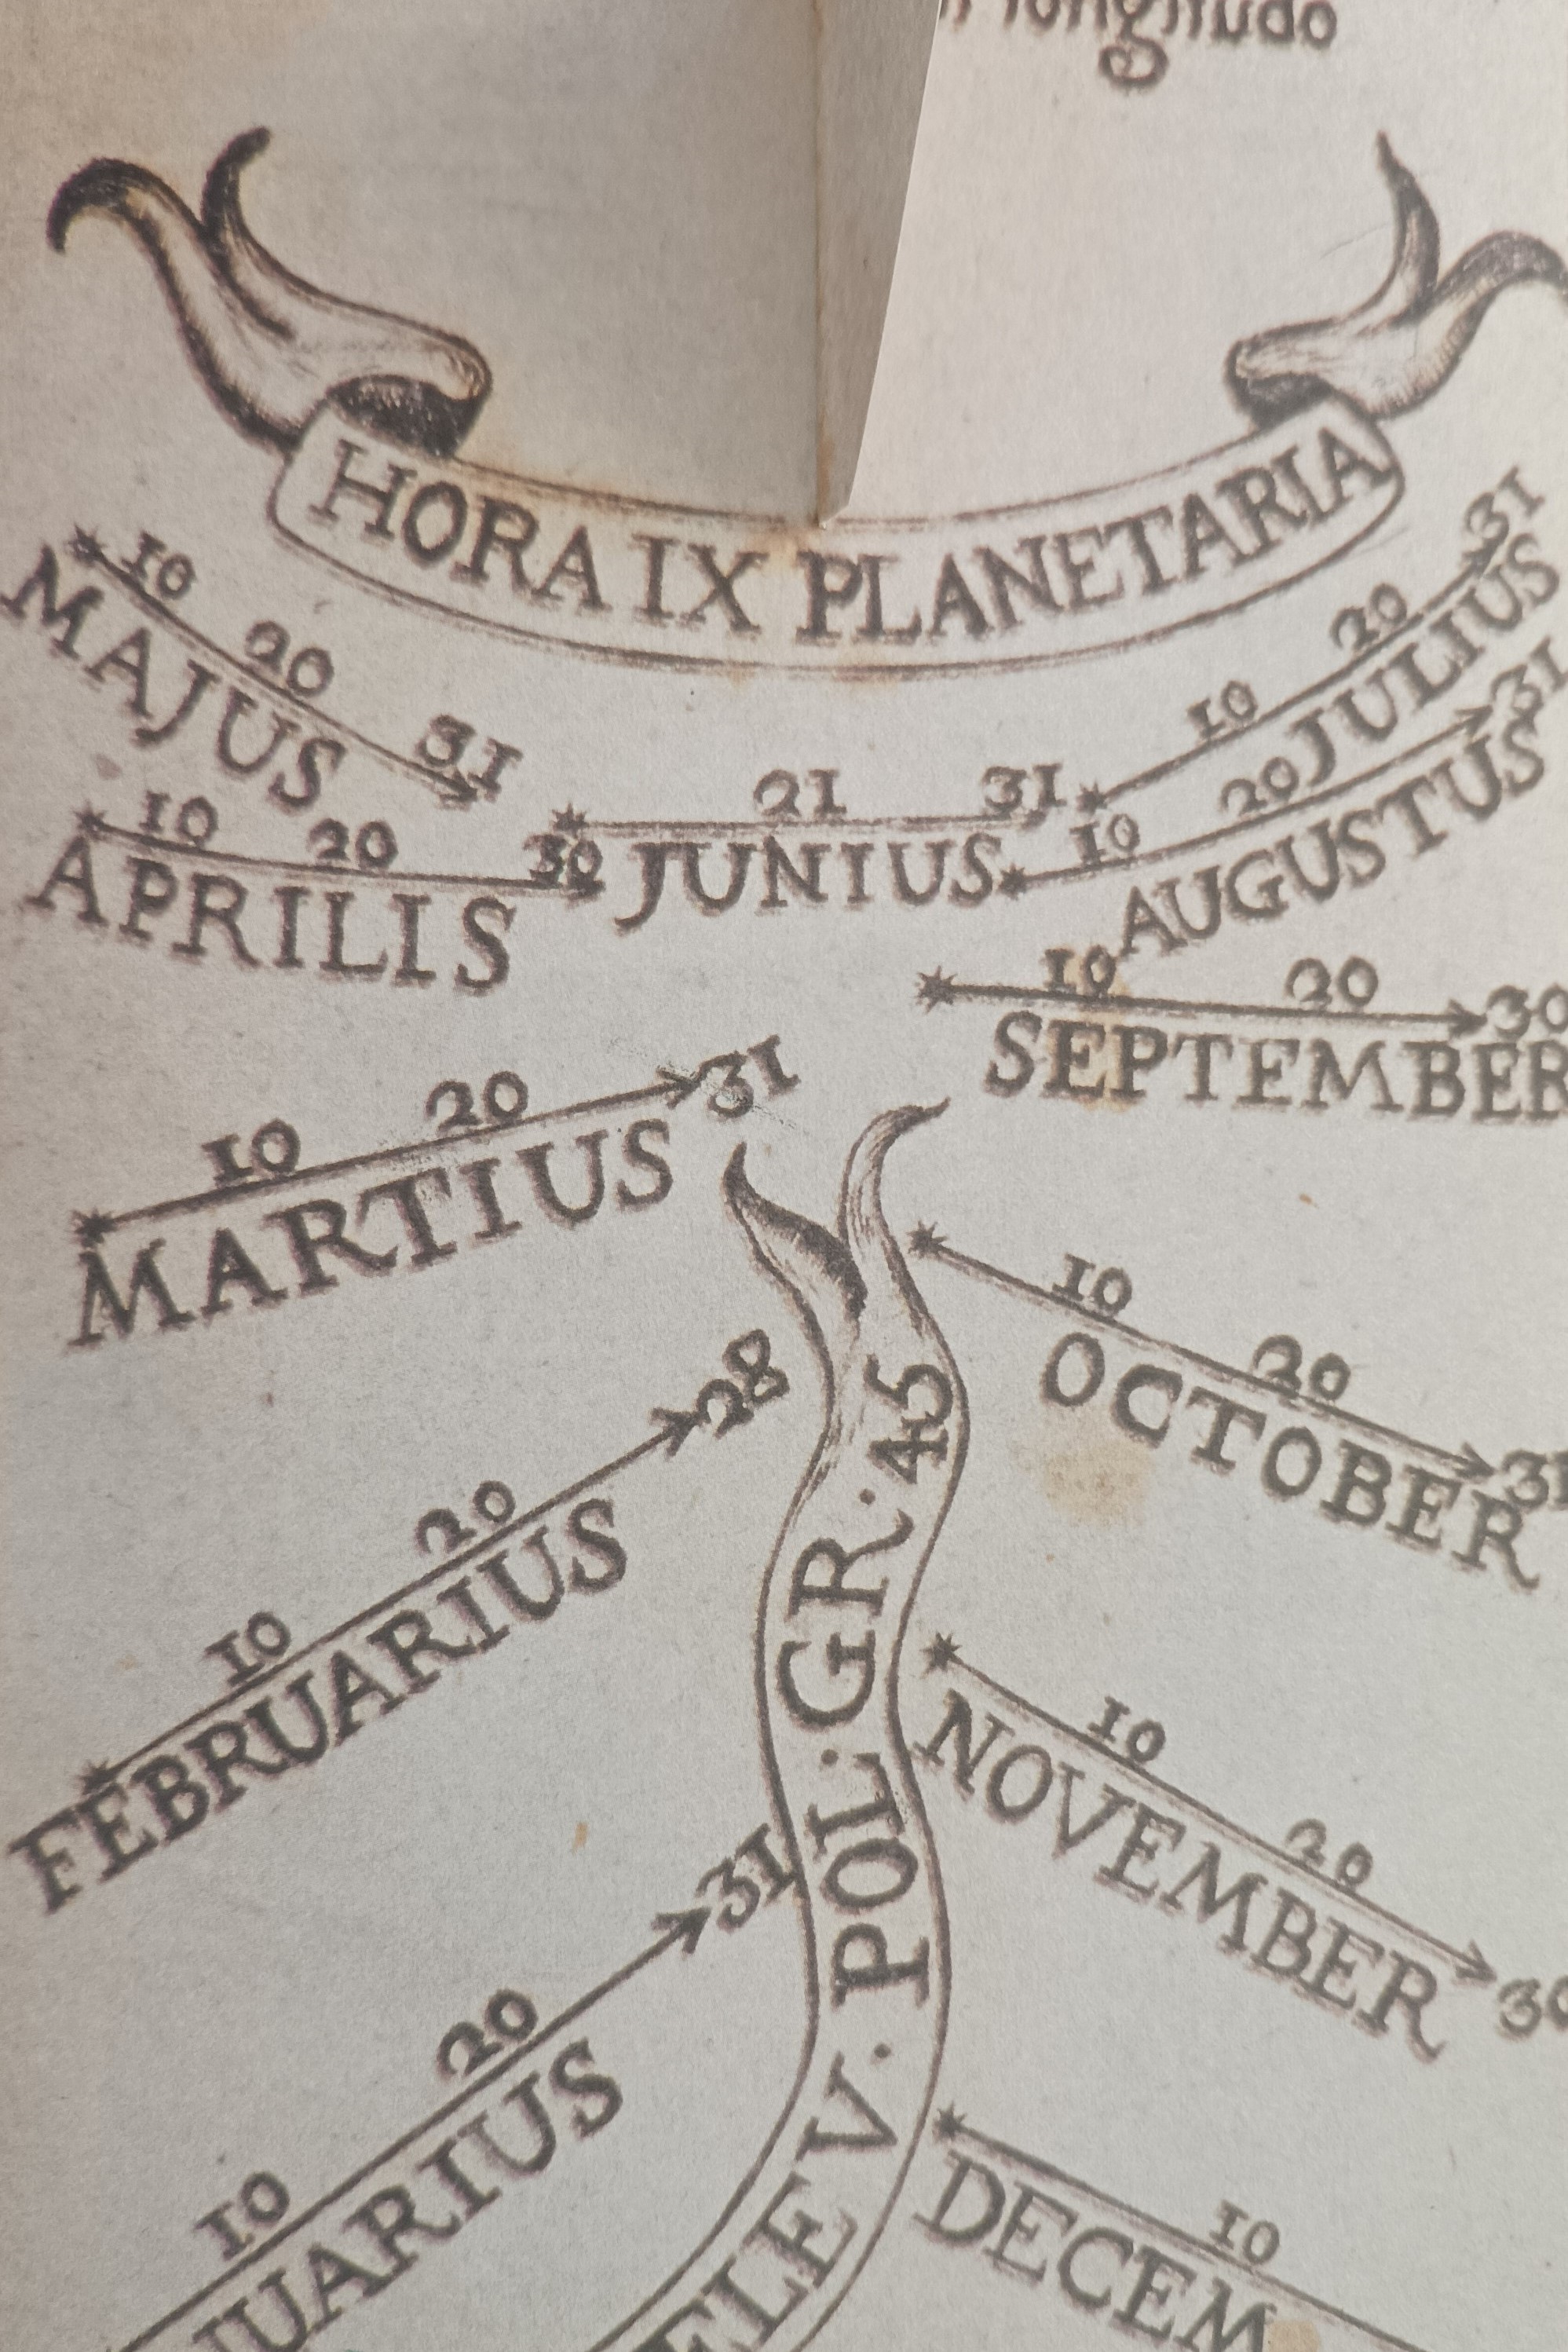 longitudo
HORA IX PLANETARIA
10 20 31
MAJUS
10 20 30
APRILIS
21 31
JUNIUS
10 20 31
JULIUS
10 20 31
AUGUSTUS
10 20 30
SEPTEMBER
10 20 31
MARTIUS
10 20 31
OCTOBER
10 20 28
FEBRUARIUS
10 20 30
NOVEMBER
10 20 31
UARIUS
10
DECEM
ELEV. POL. GR. 45